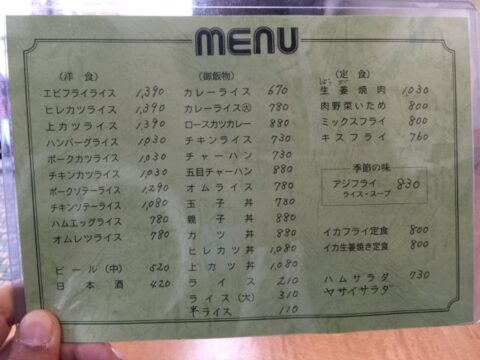 MENU
(洋食)
エビフライライス 1,390
ヒレカツライス 1,390
上カツライス 1,390
ハンバーグライス 1030
ポークカツライス 1030
チキンカツライス 1,030
ポークソテーライス 1,290
チキンソテーライス 1,080
ハムエッグライス 780
オムレツライス 780
ビール(中) 520
日本酒 420
(御飯物)
カレーライス 670
カレーライス(大) 780
ロースカツカレー 880
チキンライス 730
チャーハン 730
五目チャーハン 880
オムライス 780
玉子丼 730
親子丼 880
カツ丼 880
ヒレカツ丼 1,080
上カツ丼 1,080
ライス 210
ライス(大) 310
半ライス 110
(定食)
しょうが
生姜焼肉 1,030
肉野菜いため 800
ミックスフライ 800
キスフライ 760
季節の味
アジフライ 830
ライス・スープ
イカフライ定食 800
イカ生姜焼き定食 800
ハムサラダ 730
ヤサイサラダ